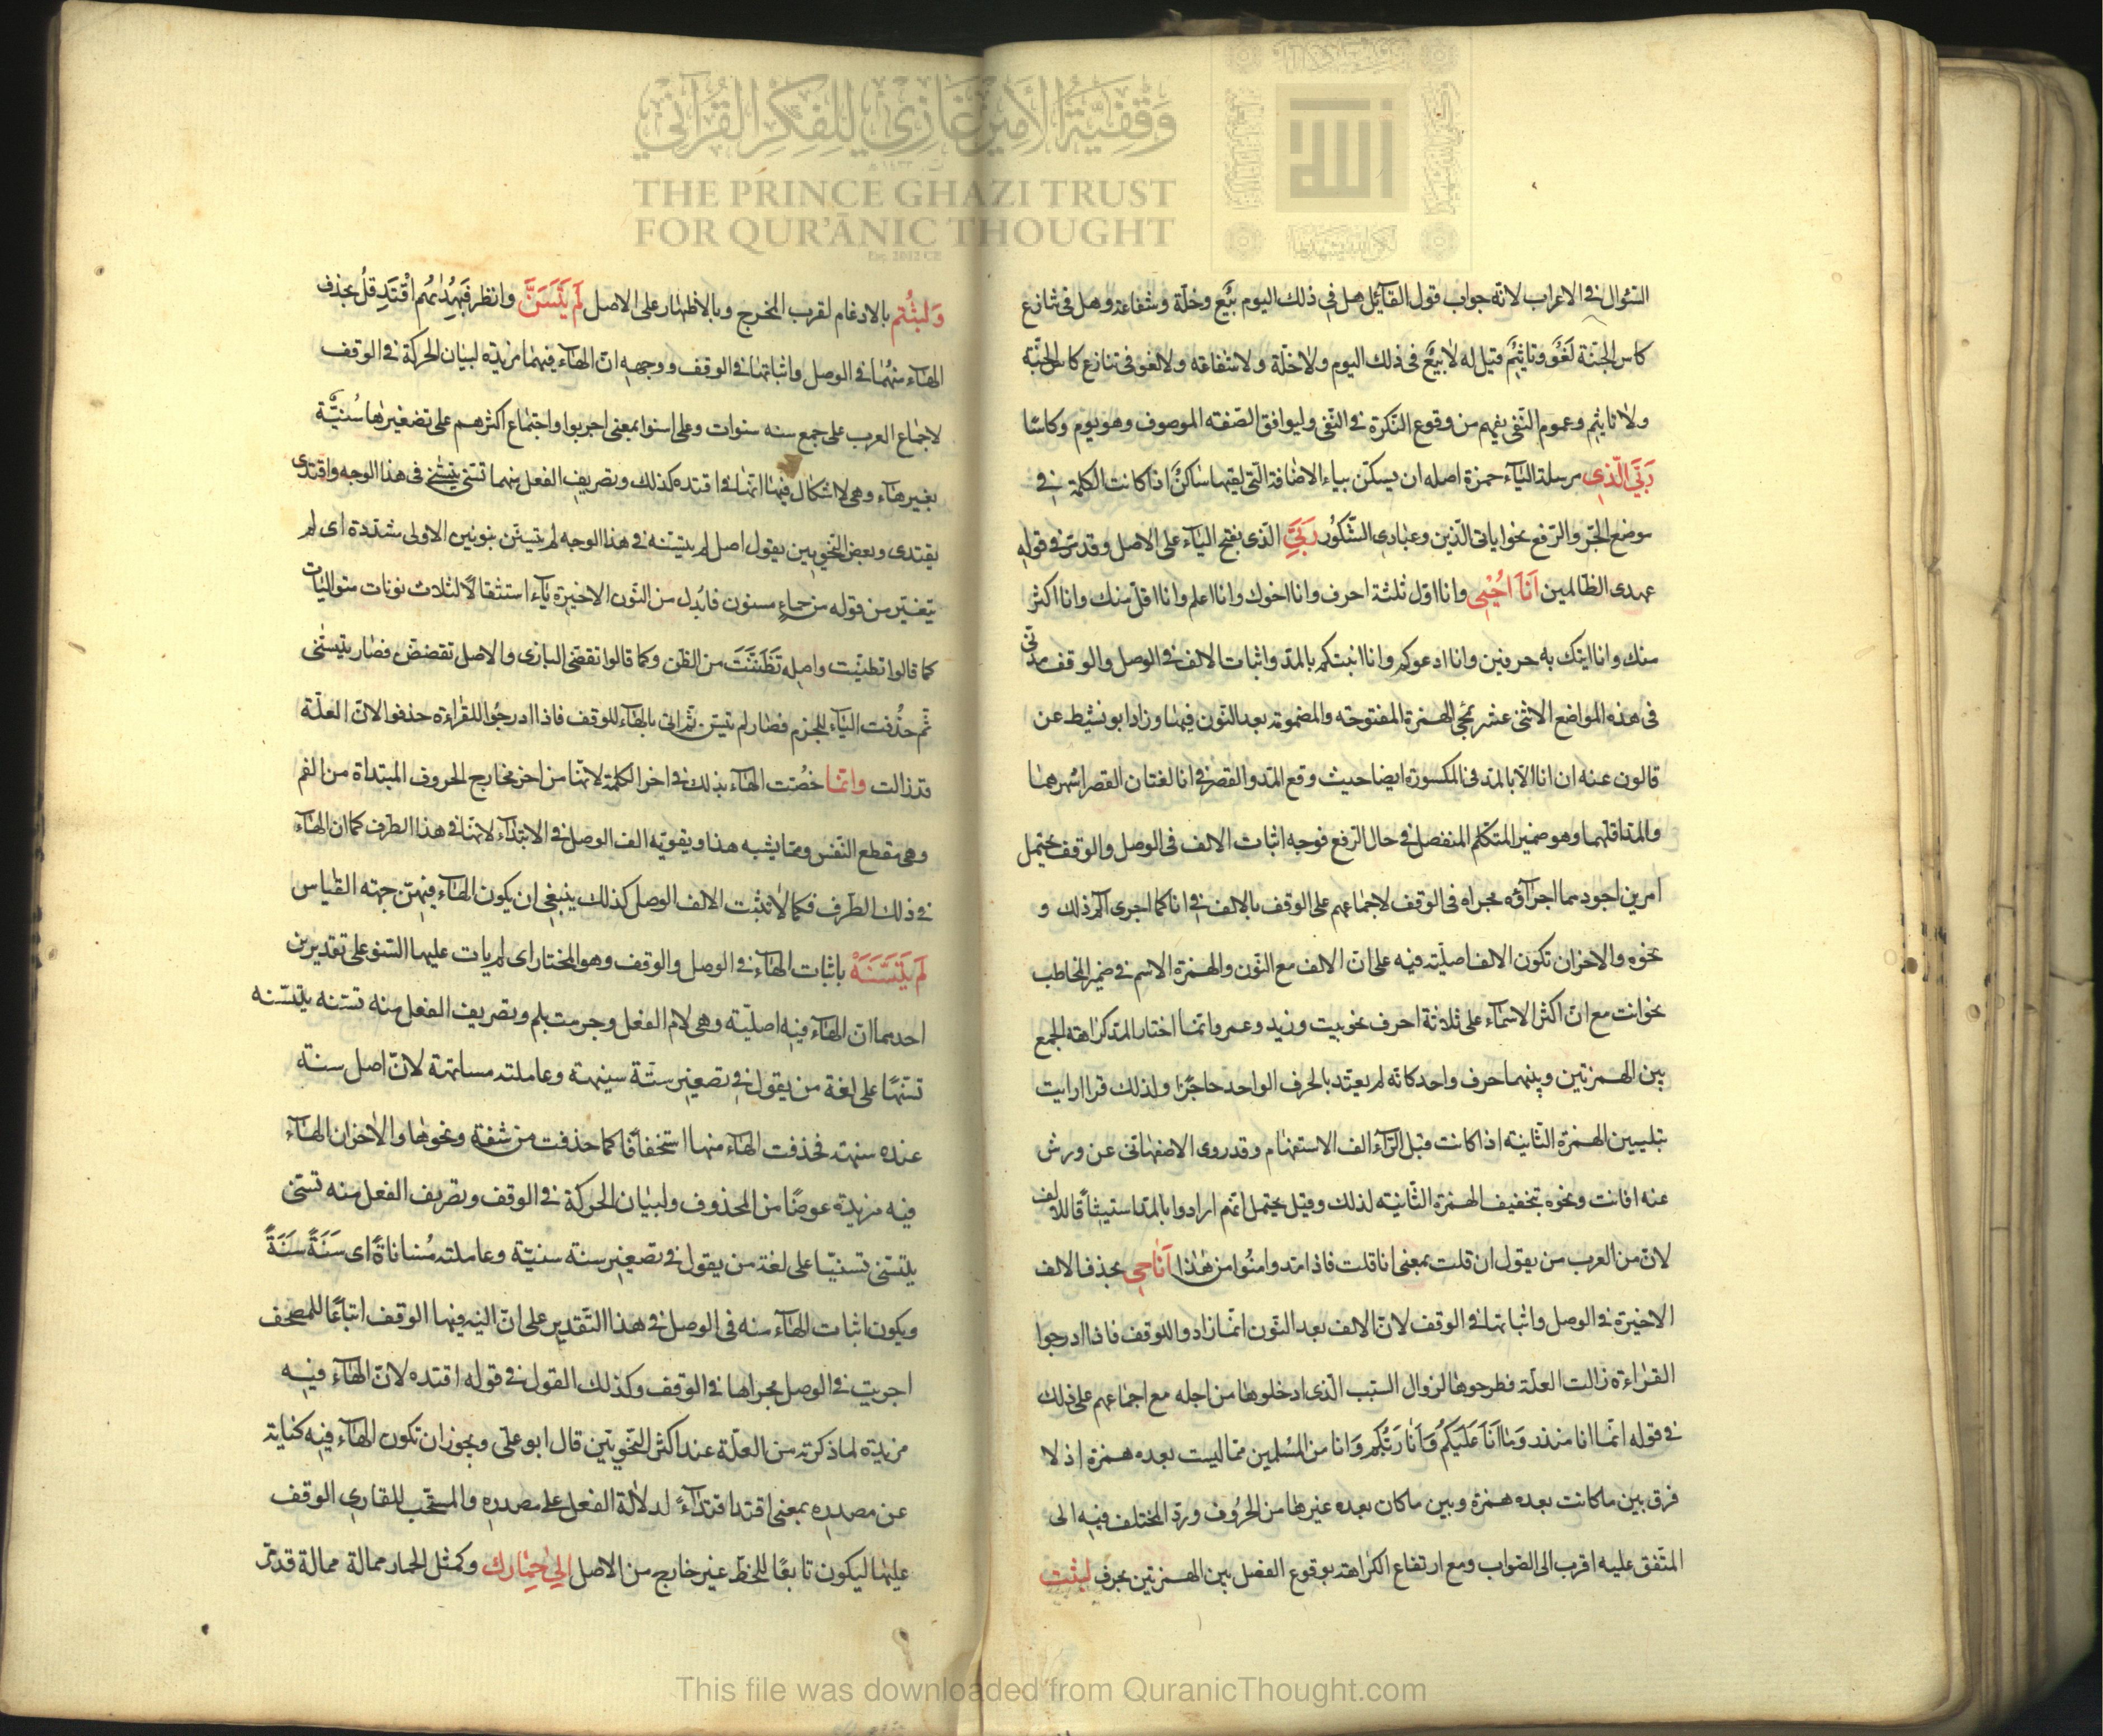 السّؤال فى الاعراب لانّه جواب قول القآئل هل فى ذلك اليوم بيٌع وخلّة وشفاعة وهل فى تنازع
كاس الجنّة لَغْوٌ وتاثيٌم قيل له لا بيعٌ فى ذلك اليوم ولا خلّة ولا شفاعة ولا لغو فى تنازع كاس الجنّة
ولا تاثيم وعموم النّفى يفهم من وقوع النّكرة فى النّفى وليوافق الصّفة الموصوف وهو يوم وكاسًا
رَبِّيَ الَّذِى مرسلة اليآء حمزة اصله ان يسكّن ياء الاضافة الّتى لقيها ساكنٌ اذا كانت الكلمة فى
موضع الجّر والرّفع نحو اياتى الّذين وعبادى الشّكوُر رَبِّيَ الّذى بفتح اليآء على الاصل وقد مرّ فى قوله
عهدى الظالمين اَنَا اُحْيِى وانا اوّل ثلثة احرف وانا اخوك وانا اعلم وانا اقلّ منك وانا اكثر
منك وانا اتيك به حرفين وانا ادعوكم وانا انبئكم بالمدّ واثبات الالف فى الوصل والوقف مدنى
فى هذه المواضع الاثنى عشر لمجئ الهمزة المفتوحة والمضمومة بعد النّون فيها وزاد ابو نشيط عن
قالون عنه ان انا الّا بالمدّ فى المكسورة ايضا حيث وقع المدّ والقصر فى انا لغتان القصر اشهرهما
والمدّ اقلّهما وهو ضمير المتكلّم المنفصل فى حال الرّفع فوجه اثبات الالف فى الوصل والوقف يحتمل
امرين اجودهما اجرآؤه مجراه فى الوقف لاجماعهم على الوقف بالالف فى انا كما اجرى الم ذلك و
نحوه والاخر ان تكون الالف اصليّة فيه على انّ الالف مع النّون والهمزة الاسم فى ضمير المخاطب
نحو انت مع انّ اكثر الاسمآء على ثلاثة احرف نحو بيت وزيد وعمر وانّما اختار المدّ كراهة الجمع
بين الهمزتين وبينهما حرف واحد كانّه لم يعتدّ بالحرف الواحد حاجزًا ولذلك قرا ارايت
بتليين الهمزة الثّانية اذا كانت قبل الرّآء الف الاستفهام وقد روى الاصفهانّى عن ورش
عنه افانت ونحوه بتخفيف الهمزة الثّانية لذلك وقيل يحتمل انّهم ارادوا بالمدّ استيثاقًا للالف
لانّ من العرب من يقول ان قلت بمعنى انا قلت فاذا مدّوا امنُوا من هذا اَنَا احيى بحذف الالف
الاخيرة فى الوصل واثباتها فى الوقف لانّ الالف بعد النّون انّما زادوا للوقف فاذا ادرجوا
القراءة زالت العلّة فطرحوها لزوال السّبب الّذى ادخلوها من اجله مع اجماعهم على ذلك
فى قوله انّما انا منذر وَمَا اَنَا عَلَيكُم وَاَنَا رَبُّكم وَانا من المُسْلمين ممّا ليست بعده همزة اذ لا
فرق بين ما كانت بعده همزة وبين ما كان بعده غيرها من الحرُوف وردّ المختلف فيه الى
المتّفق عليه اقرب الى الصّواب ومع ارتفاع الكراهة بوقوع الفصل بين الهمزتين بحرف لبثت
وَلبثُتم بالادغام لقرب المخرج وبالاظهار على الاصل لَم يَتَسَنَّ وانظر فَبِهُدَاهُم اقْتَدِ قلُ بحذف
الهآء منهُما فى الوصل واثباتها فى الوقف ووجهه انّ الهآء فيهما مزيدة لبيان الحركة فى الوقف
لاجماع العرب على جمع سنه سنوات وعلى اسنوا بمعنى اجربوا واجتماع اكثرهم على تصغيرها سُنيَّة
بغير هآء وهى لا اشكال فيها انّها فى اقتده كذلك وتصريف الفعل منهما تسنّى يتسنّى فى هذا الوجه واقتدى
يقتدى وبعض النّحويين يقول اصل لم يتسنّه فى هذا الوجه لم يتسنّن بنونين الاولى مشدّدة اى لم
يتغيّر من قوله من حماٍء مسنون فابُدل من النّون الاخيرة يآء استثقالًا لثلاث نونات متواليات
كما قالوا تظنّيت واصله تَظَنَّنَت من الظّن وكما قالوا تقضّى البازى والاصل تقضّض فصار يتسنّى
ثّم حذُفت اليآء للجزم فصار لم يتسنّ ثّم اتى بالهآء للوقف فاذا ادرجُوا القراءة حذفوا لانّ العلّة
قد زالت وانّما خصّت الهآء بذلك فى اخر الكلمة لانّها من اخر مخارج الحروف المبتداة من الفم
وهى مقطع النّفس وممّا يشبه هذا ويقوّيه الف الوصل فى الابتدآء لانّها فى هذا الطّرف كما ان الهآء
فى ذلك الطّرف فكما لا تثبت الالف الوصل كذلك ينبغى ان يكون الهآء فيهنّ جهة القياس
لَم يَتَسَنَّهْ باثبات الهآء فى الوصل والوقف وهو المختار اى لم يات عليها السّنو على تقديرين
احدهما انّ الهآء فيه اصليّة وهى لام الفعل وجزمت بلم وتصريف الفعل منه تسنّه يتسنّه
تسنّهًا على لغة من يقول فى تصغير سنّة سنيهة وعاملته مسانهة لانّ اصل سنة
عنده سنهة فحذفت الهآء منها استخفافًا كما حذفت من شفة ونحوها والاخر ان الهآء
فيه مزيدة عوضًا من المحذوف ولبيان الحركة فى الوقف وتصريف الفعل منه تسنّى
يتسنّى تسنّيا على لغة من يقول فى تصغير سنة سنيّة وعاملته مُساناةً اى سَنَةً سَنَةً
ويكون اثبات الهآء منه فى الوصل فى هذا التّقدير على انّ النيّة فيها الوقف اتباعًا للمصحف
اجريت فى الوصل مجراها فى الوقف وكذلك القول فى قوله اقتده لانّ الهآء فيه
مزيدة لما ذكرته من العلّة عند اكثر النّحويّين قال ابو علّى ويجوز ان تكون الهآء فيه كناية
عن مصدره بمعنى اقتد اقتدآءً لدلالة الفعل على مصدره والمستحّب للقارى الوقف
عليها ليكون تابعًا للخطّ غير خارج من الاصل اِلى حِمَارك وكمثل الحمار ممالة ممالة قد مّر